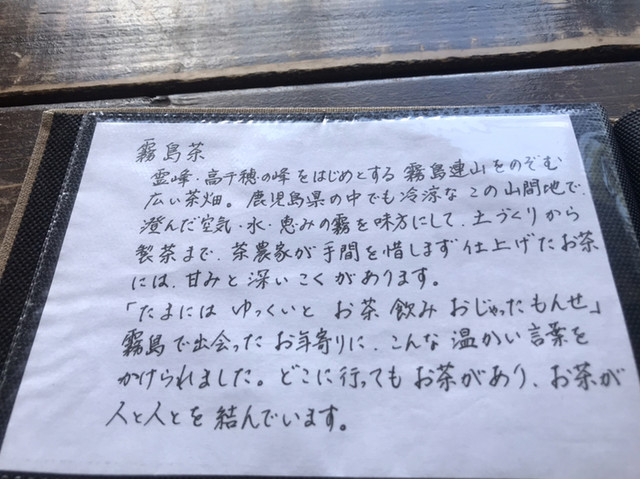 霧島茶
霊峰・高千穂の峰をはじめとする霧島連山をのぞむ
広い茶畑。鹿児島県の中でも冷涼なこの山間地で、
澄んだ空気・水・恵みの霧を味方にして、土づくりから
製茶まで、茶農家が手間を惜しまず仕上げたお茶
には、甘みと深いこくがあります。
「たまには ゆっくいと お茶 飲み おじゃったもんせ」
霧島で出会ったお年寄りに、こんな温かい言葉を
かけられました。どこに行ってもお茶があり、お茶が
人と人とを結んでいます。